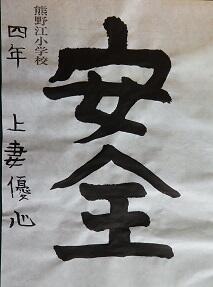 安全
熊野江小学校
四年 上妻優心